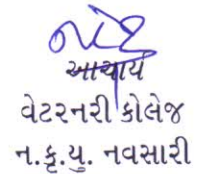 આચાર્ય
વેટરનરી કોલેજ
ન.કૃ.યુ. નવસારી